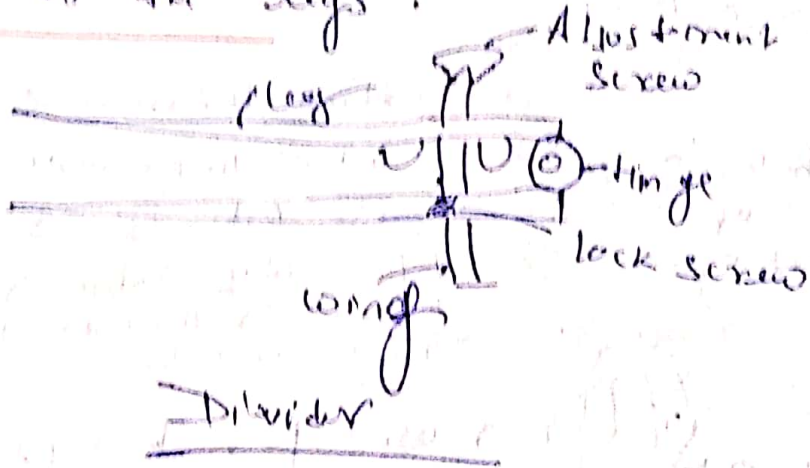 legs.
Adjustment
screw
leg
Hinge
lock screw
wing
Divider